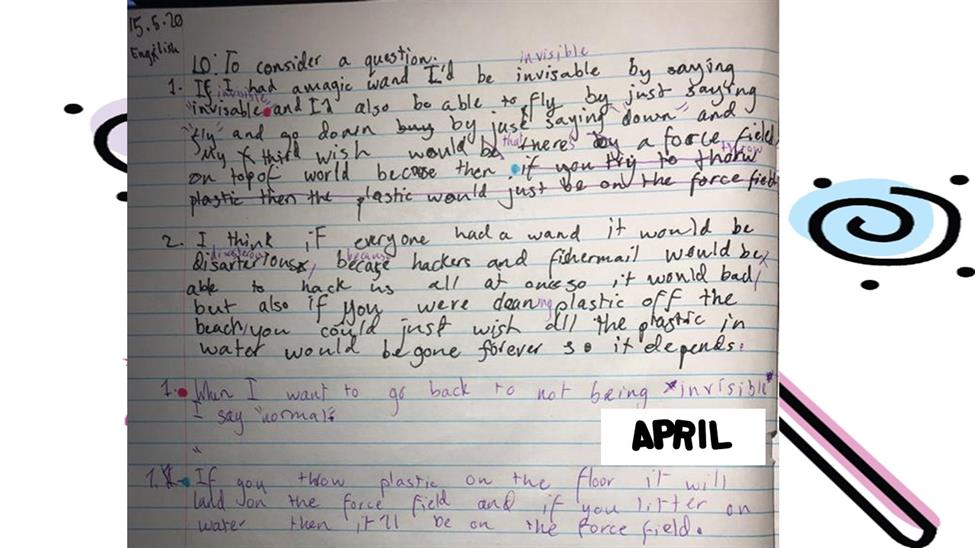 15.5.20
English
LO: To consider a question.
invisible
1. If I had a magic wand I'd be invisable by saying
invisible
"invisable" and I'd also be able to fly by just saying
"fly" and go down buy by just saying "down" and
that
My third wish would be there's by a force field
throw
on top of world because then if you try to thorw
plastic then the plastic would just be on the force field
2. I think if everyone had a wand it would be
disasterous because
disartertous, becase hackers and fishermail would be
able to hack us all at once so it would bad,
but also if you were cleaning plastic off the
beach, you could just wish all the plastic in
water would be gone forever so it depends.
1. When I want to go back to not being *invisible*
I say "normal".
APRIL
1. If you throw plastic on the floor it will
land on the force field and if you litter on
water then it'll be on the force field.